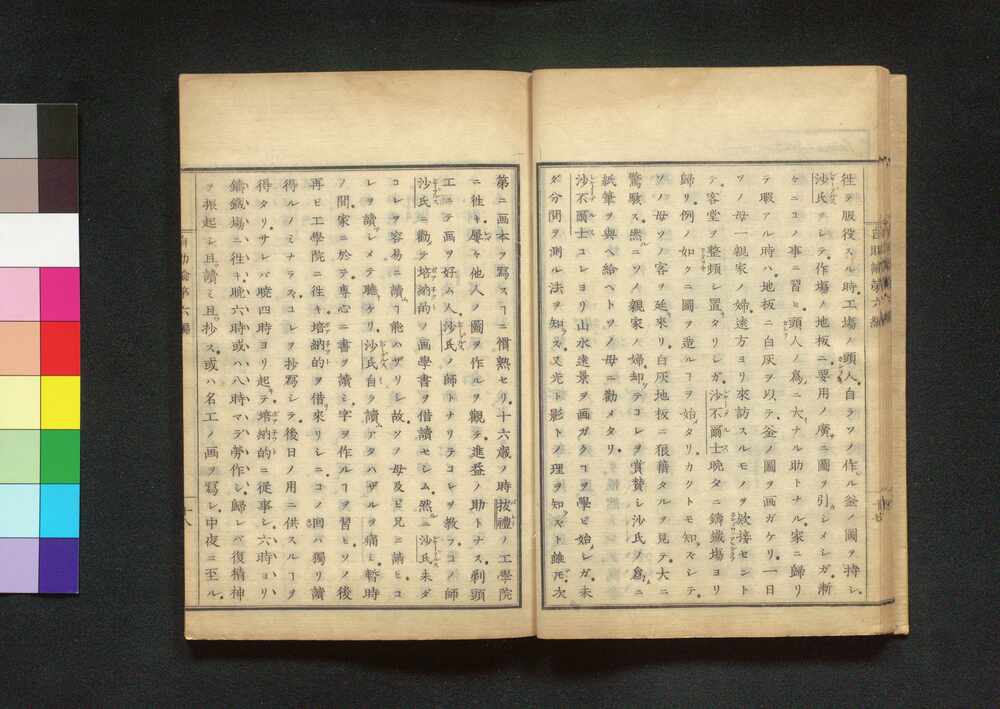 徃テ服役スル時工場ノ頭人自ラソノ作ル釜ノ圖ヲ持シ
沙氏ヲシテ作塲ノ地板ニ要用ノ廣ニ圖ヲ引カシメシガ漸
々ニコノ事ニ習ヒ頭人ノ爲ニ大ナル助トナル家ニ歸リ
テ暇アル時ハ地板ニ白灰ヲ以テ釜ノ圖ヲ画ガケリ一日
ソノ母一親家ノ婦遠方ヨリ來訪スルモノヲ欵接セント
テ客堂ヲ整頓シ置タリシガ沙不爾士晩タニ鑄鐵塲ヨリ
歸リ例ノ如クニ圖ヲ造ルヿヲ始メタリカクトモ知ズシテ
ソノ母ソノ客ヲ延來リ白灰地板ニ狼藉タルヲ見テ大ニ
驚駭ス然ルニソノ親家ノ婦却テコレヲ賞賛シ沙氏ノ爲ニ
紙筆ヲ與ヘ給ヘトソノ母ニ勸メタリ
沙不爾士コレヨリ山水遠景ヲ画ガクヿヲ學ビ始メシガ未
ダ分閒ヲ測ル法ヲ知ズ又光ト影トノ理ヲ知ズト雖𪜈次
第ニ画本ヲ寫スヿニ慣熟セリ十六歳ノ時拔禮ノ工學院
ニ徃キ屢々他人ノ圖ヲ作ルヲ觀テ進益ノ助トナス剃頭
工ニテ画ヲ好ム人沙氏ノ師トナリテコレヲ教フコノ師
沙氏ニ勸テ培納的ノ画學書ヲ借讀セシム然ルニ沙氏未ダ
コレヲ容易ニ讀ムヿ能ハザリシ故ソノ母及ビ兄ニ請ヒコ
レヲ讀シメテ聴ケリ沙氏自ラ讀ムアタハザルヲ痛ミ暫時
ノ閒家ニ於テ専心ニ書ヲ讀ミ字ヲ作ルヿヲ習ヒソノ後
再ヒ工學院ニ徃キ培納的ヲ借來リシニコノ回ハ獨リ讀
得ルノミナラズコレヲ抄寫シテ後日ノ用ニ供スルヿヲ
得タリサレバ曉四時ヨリ起テ培納的ニ從事シ六時ヨリ
鑄鐵塲ニ徃キ晩六時或ハ八時マデ勞作シ歸レバ復精神
ヲ振起シ且讀ミ且抄ス或ハ名工ノ画ヲ寫シ中夜ニ至ル